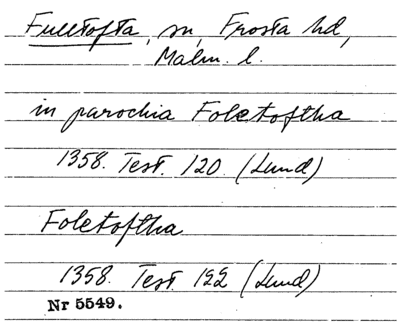 Fulltofta, sn, Frosta hd,
Malm. l.
in parochia Foletoftha
1358. Test. 120. (Lund)
Foletoftha
1358. Test. 122 (Lund)
Nr 5549.